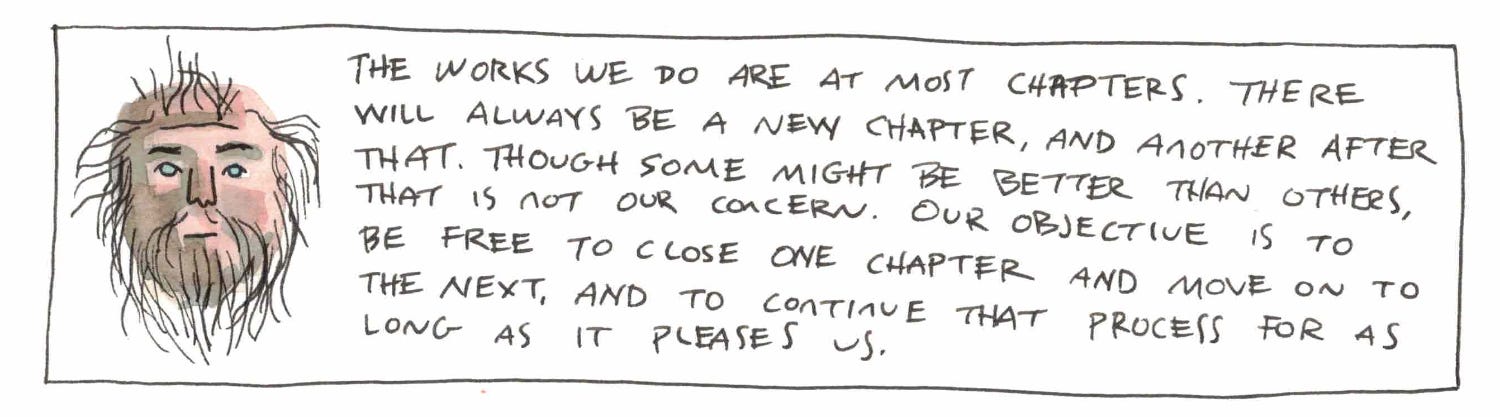 THE WORKS WE DO ARE AT MOST CHAPTERS. THERE
WILL ALWAYS BE A NEW CHAPTER, AND ANOTHER AFTER
THAT. THOUGH SOME MIGHT BE BETTER THAN OTHERS,
THAT IS NOT OUR CONCERN. OUR OBJECTIVE IS TO
BE FREE TO CLOSE ONE CHAPTER AND MOVE ON TO
THE NEXT, AND TO CONTINUE THAT PROCESS FOR AS
LONG AS IT PLEASES US.